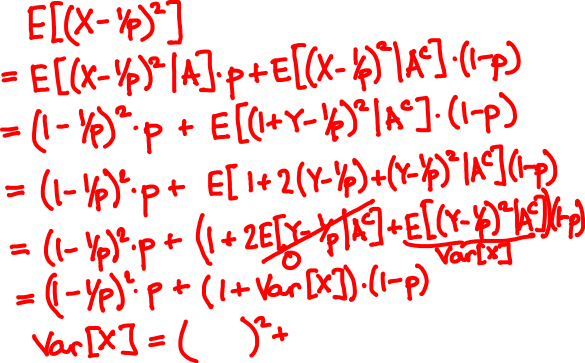 E[(X - 1/p)²]
= E[(X - 1/p)² | A] · p + E[(X - 1/p)² | Aᶜ] · (1-p)
= (1 - 1/p)² · p + E[(1 + Y - 1/p)² | Aᶜ] · (1-p)
= (1 - 1/p)² · p + E[1 + 2(Y - 1/p) + (Y - 1/p)² | Aᶜ](1-p)
= (1 - 1/p)² · p + (1 + 2E[Y - 1/p | Aᶜ] + E[(Y - 1/p)² | Aᶜ])(1-p)
0 Var[X]
= (1 - 1/p)² · p + (1 + Var[X]) · (1-p)
Var[X] = ( )² +